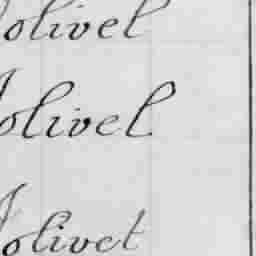 Jolivel
Jolivel
Jolivet